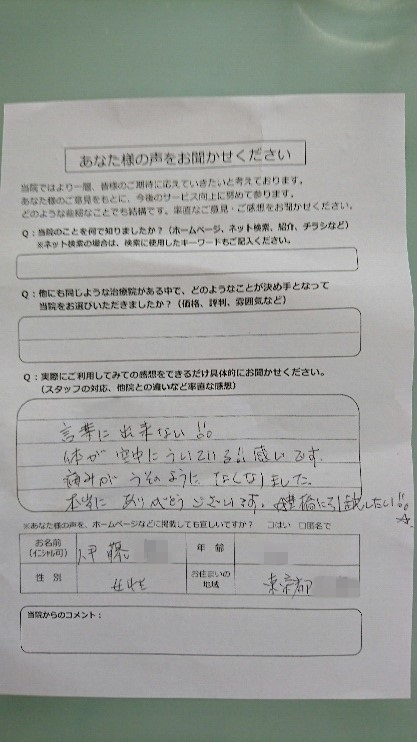 あなた様の声をお聞かせください
当院ではより一層、皆様のご期待に応えていきたいと考えております。
あなた様のご意見をもとに、今後のサービス向上に努めて参ります。
どのような些細なことでも結構です。率直なご意見・ご感想をお聞かせください。
Q：当院のことを何で知りましたか？（ホームページ、ネット検索、紹介、チラシなど）
※ネット検索の場合は、検索に使用したキーワードもご記入ください。
Q：他にも同じような治療院がある中で、どのようなことが決め手となって
当院をお選びいただきましたか？（価格、評判、雰囲気など）
Q：実際にご利用してみての感想をできるだけ具体的にお聞かせください。
（スタッフの対応、他院との違いなど率直な感想）
言葉に出来ない!!。
体が空中にういている!!感いです。
痛みがうそのようになくなりました。
本当にありがとうございます。 橋に引越したい!!。
※あなた様の声を、ホームページなどに掲載しても宜しいですか？ □はい □匿名で
お名前 伊藤 年齢
（イニシャル可）
性別 女性 お住まいの 東京都
地域
当院からのコメント：